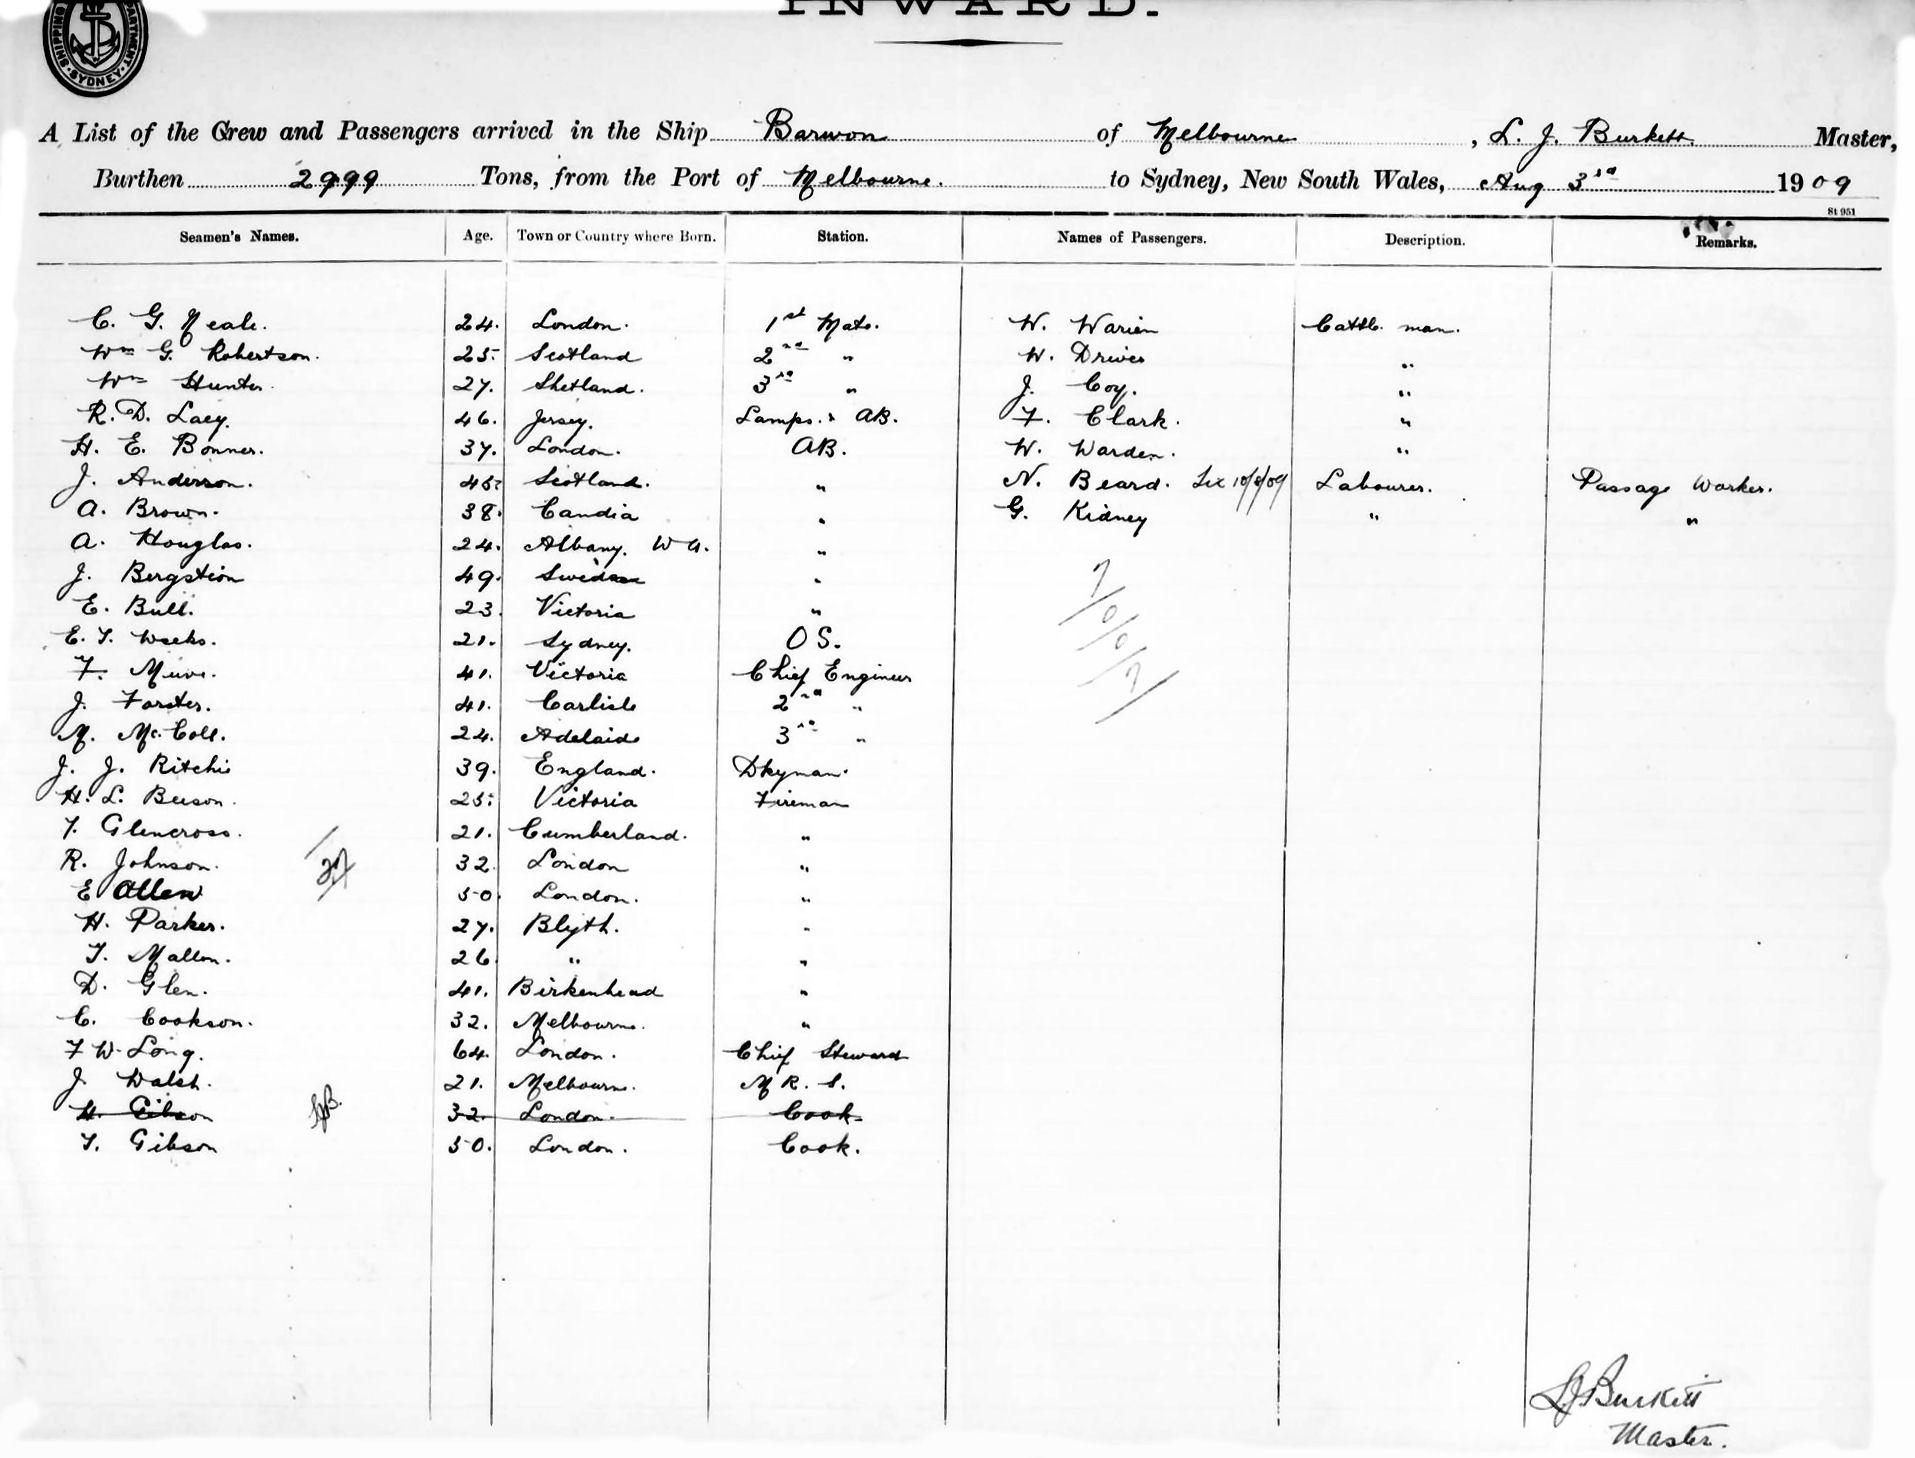 INWARD.
SHIPPING DEPARTMENT SYDNEY
A List of the Crew and Passengers arrived in the Ship Barwon of Melbourne, L. J. Burkett Master,
Burthen 2999 Tons, from the Port of Melbourne. to Sydney, New South Wales, Aug 3rd 1909
St 951
Seamen's Names. Age. Town or Country where Born. Station. Names of Passengers. Description. Remarks.
C. G. Neale. 24. London. 1st Mate. W. Warien Cattle man.
Wm G. Robertson. 25. Scotland 2nd " W. Driver "
Wm Hunter. 27. Shetland. 3rd " J. Coy. "
R. D. Lacy. 46. Jersey. Lamps. & AB. F. Clark. "
H. E. Bonner. 37. London. AB. W. Warden. "
J. Anderson. 45. Scotland. " N. Beard. Lix 10/8/09 Labourer. Passage Worker.
A. Brown. 38. Candia " G. Kidney " "
A. Houglas. 24. Albany. W A. "
J. Bergstion 49. Sweden "
E. Bull. 23. Victoria "
E. T. Weeks. 21. Sydney. OS.
F. Muve. 41. Victoria Chief Engineer
J. Forster. 41. Carlisle 2nd "
M. McColl. 24. Adelaide 3rd "
J. J. Ritchie 39. England. Dkyman.
H. L. Beeson. 25. Victoria Fireman
T. Glencross. 21. Cumberland. "
R. Johnson. 32. London "
E Allen 50. London. "
H. Parker. 27. Blyth. "
T. Mallon. 26 " "
D. Glen. 41. Birkenhead "
C. Cookson. 32. Melbourne. "
F W. Long. 64. London. Chief Steward
J. Walsh. 21. Melbourne. M R. S.
H. Gibson 32. London. Cook.
T. Gibson 50. London. Cook.
7/0/0/7/
27
LJB.
LJBurkett
Master.